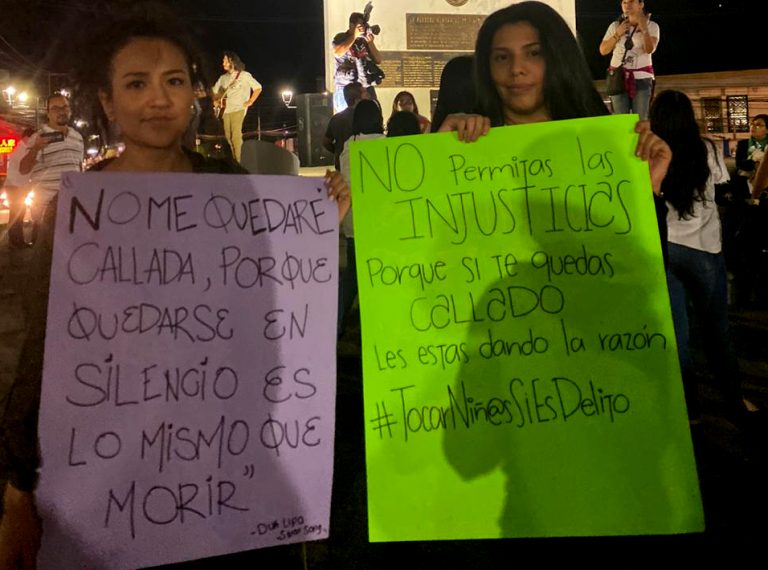 "NO ME QUEDARÉ
CALLADA, PORQUE
QUEDARSE EN
SILENCIO ES
LO MISMO QUE
MORIR"
- DUA LIPA
Swan Song
NO Permitas las
INJUSTICI@S
Porque si te quedas
C@LL@DO
Les estas dando la razón
#TocarNiñ@sSiEsDelito